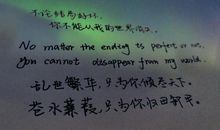 不论结局好坏，
你不能从我的世界消失。
No matter the ending is perfect or not,
You cannot disappear from my world.
乱世繁华，只为你倾尽天下。
苍水蒹葭，只为你归田卸甲。